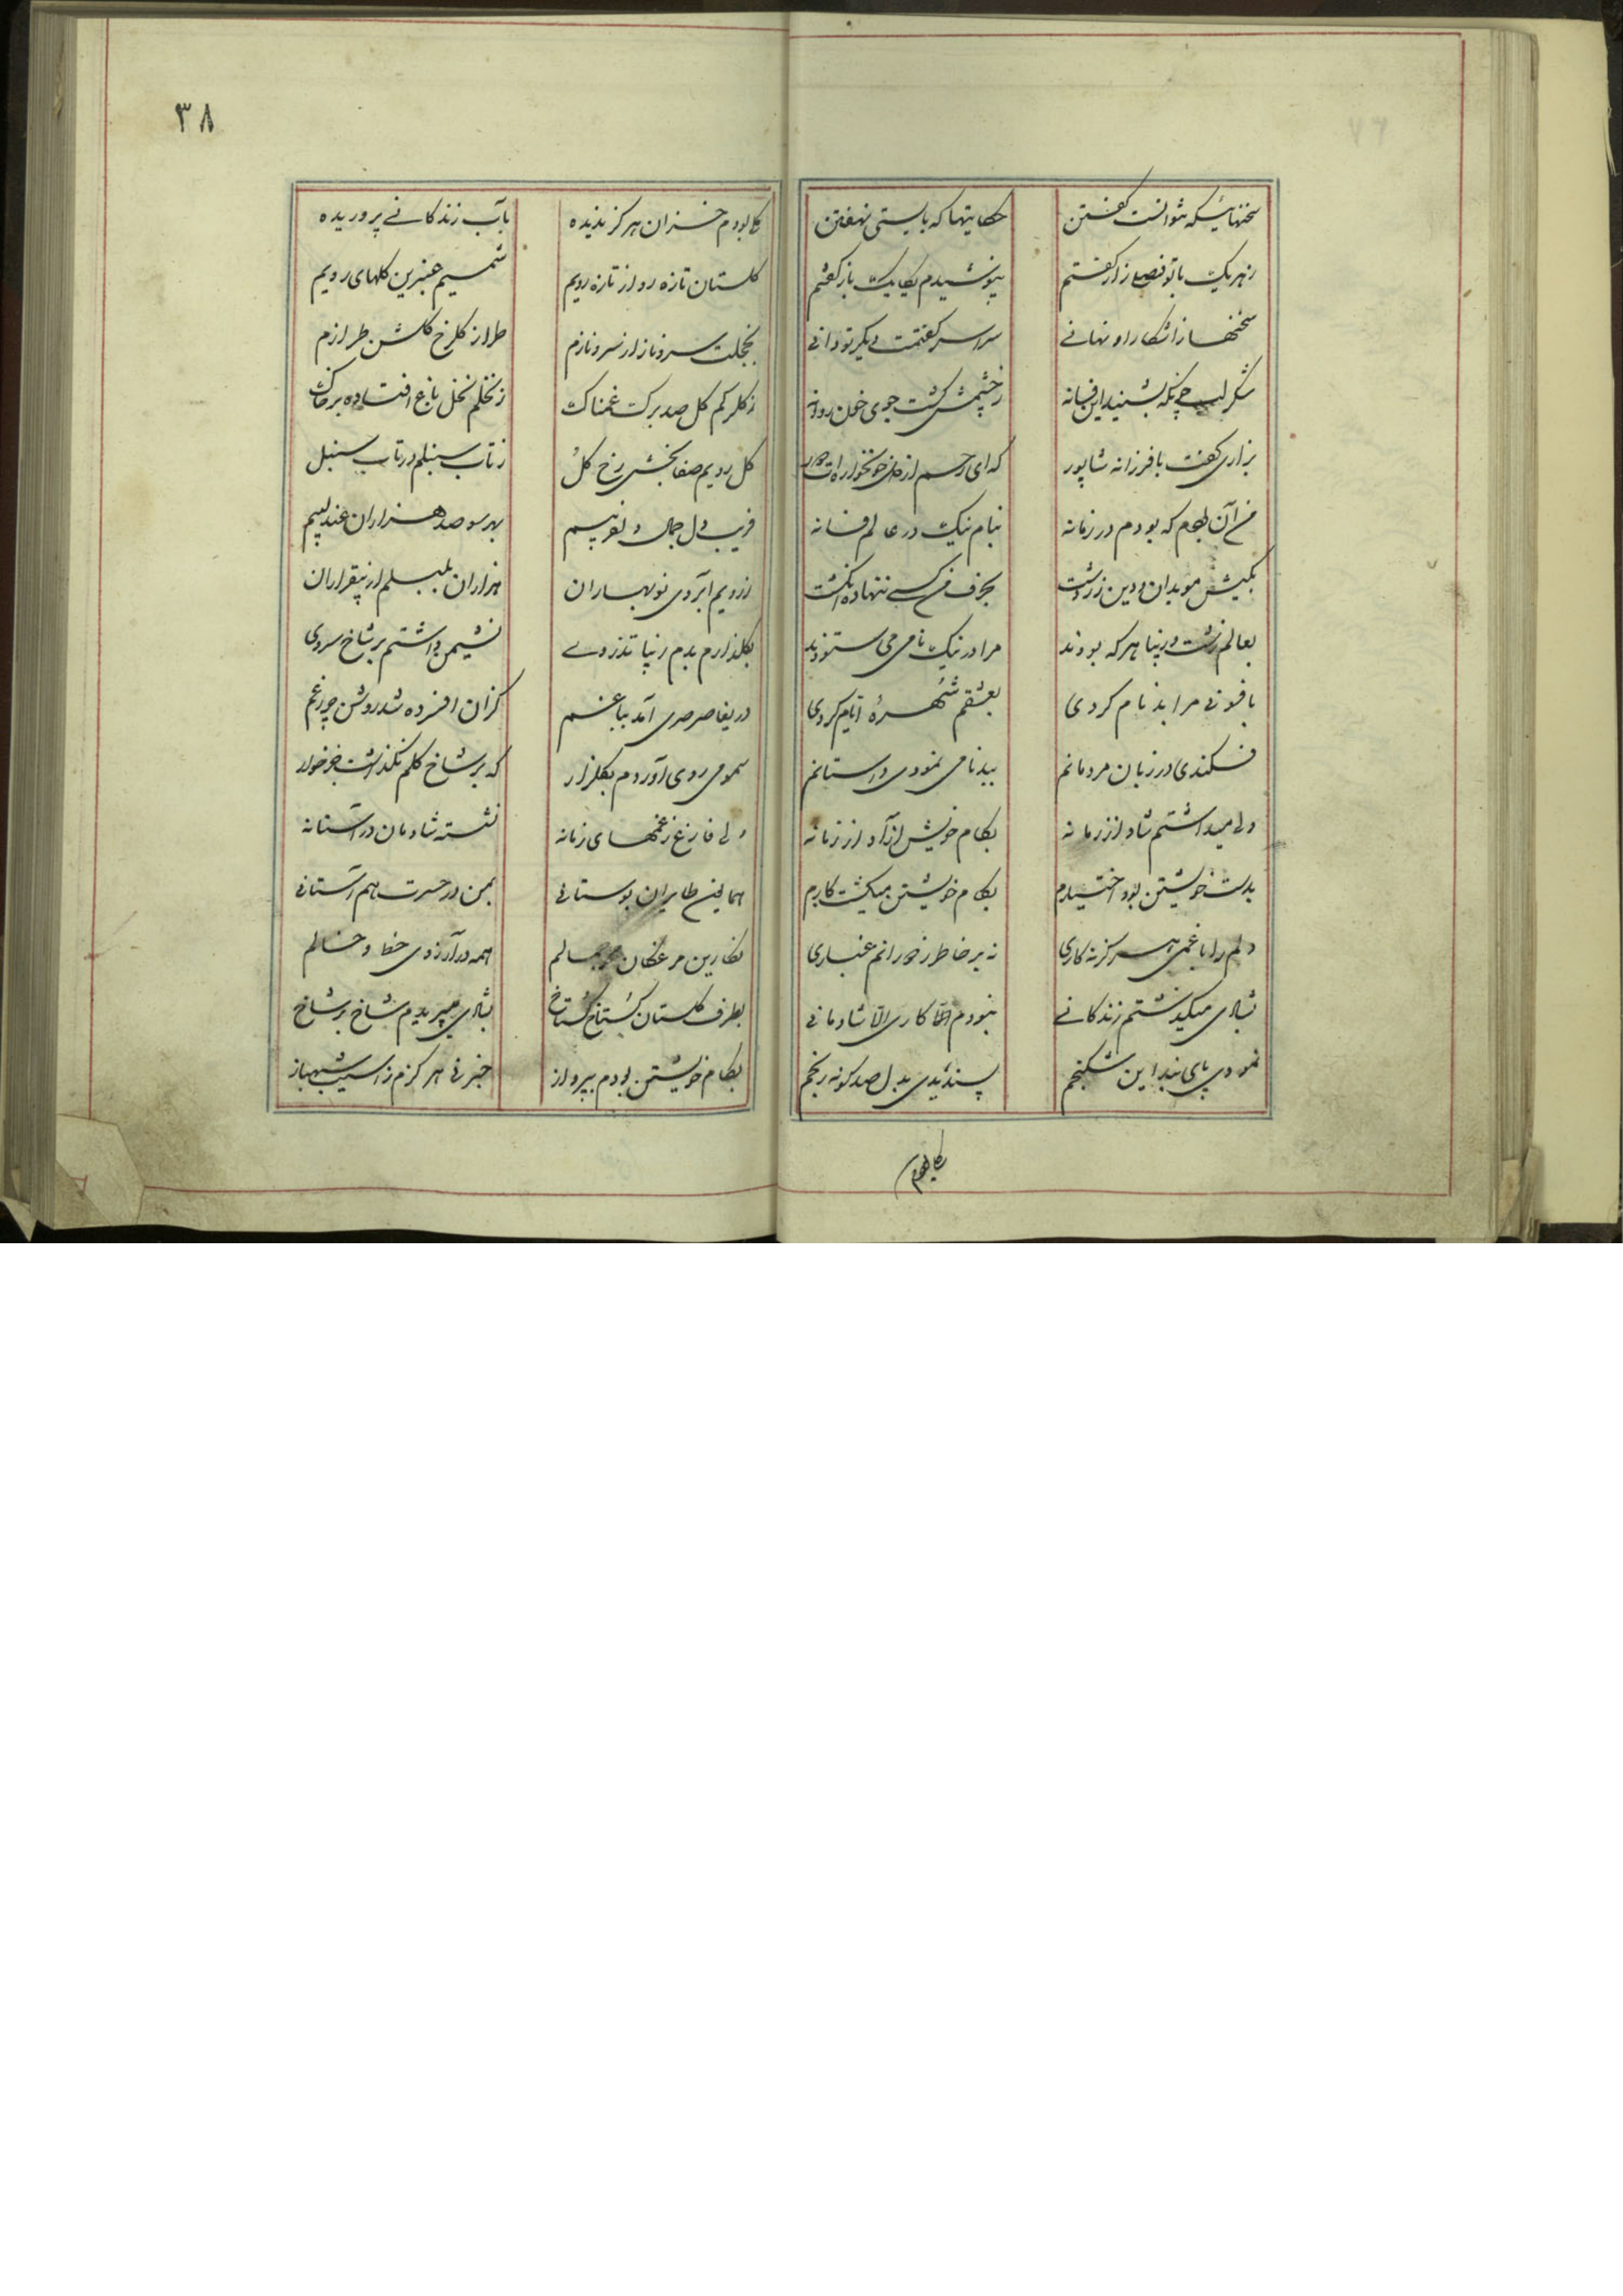 سخنهائیکه نتوانست گفتن حکایتها که بایستی نهفتن
زهر یک با تو فصلی باز گفتم نپوشیدم یکایک باز گفتم
سخنها ز آشکارا و نهانی سراسر گفتمت دیگر تو دانی
شکر لب چونکه بشنید این فسانه ز چشمش گشت جوی خون روانه
بزاری گفت با فرزانه شاپور که ای رحم از دل خونخوارت دور
من آن بودم که بودم در زمانه بنام نیک در عالم فسانه
بکیش موبدان و دین زردشت بحرف من کسی ننهاده انگشت
بعالم زشت و زیبا هر که بودند مرا در نیک نامی می ستودند
بافسونی مرا بدنام کردی بعشقم شهرهٔ ایام کردی
فکندی در زبان مردمانم ببدنامی نمودی داستانم
دلی میداشتم شاد از زمانه بکام خویش آزاد از زمانه
بدست خویشتن بود اختیارم بکام خویشتن میگشت کارم
دلم را با غمی هرگز نه کاری نه بر خاطر ز دورانم غباری
بشادی میگذشتم زندگانی نبودم کاری الا شادمانی
نمودی پای بند این شکنجم پسندیدی بدل صد گونه رنجم
بکابودم
۳۸
گلی بودم خزان هرگز ندیده بآب زندگانی پروریده
گلستان تازه رو از تازه رویم شمیم عنبرین گلهای رویم
بخجلت سرو ناز از سرو نازم طراز گلرخ گلشن طرازم
ز گلبرگم گل صد برگ غمناک ز نخلم نخل باغ افتاده بر خاک
گل رویم صفا بخش رخ گل ز تاب سنبلم در تاب سنبل
فریب دل جمال دلفریبم بهر سو صد هزاران عندلیبم
ز رویم آبروی نوبهاران هزاران بلبلم از بیقراران
بگلزارم بدم زیبا تذروی نشیمن داشتم بر شاخ سروی
دریغا صرصری آمد بباغم کز آن افسرده شد روشن چراغم
سمومی روی آورد م بگلزار که بر شاخ گلم نگذاشت جز خار
دلی فارغ ز غمهای زمانه نشسته شادمان در آشیانه
همایین طایران بوستانی بمن در حسرت هم آشیانی
نگارین مرغکان جمالم همه در آرزوی خط و خالم
بطرف گلستان گستاخ گستاخ بشادی میپریدم شاخ بر شاخ
بکام خویشتن بودم بپرواز خبر نی هرگزم ز آسیب شهباز